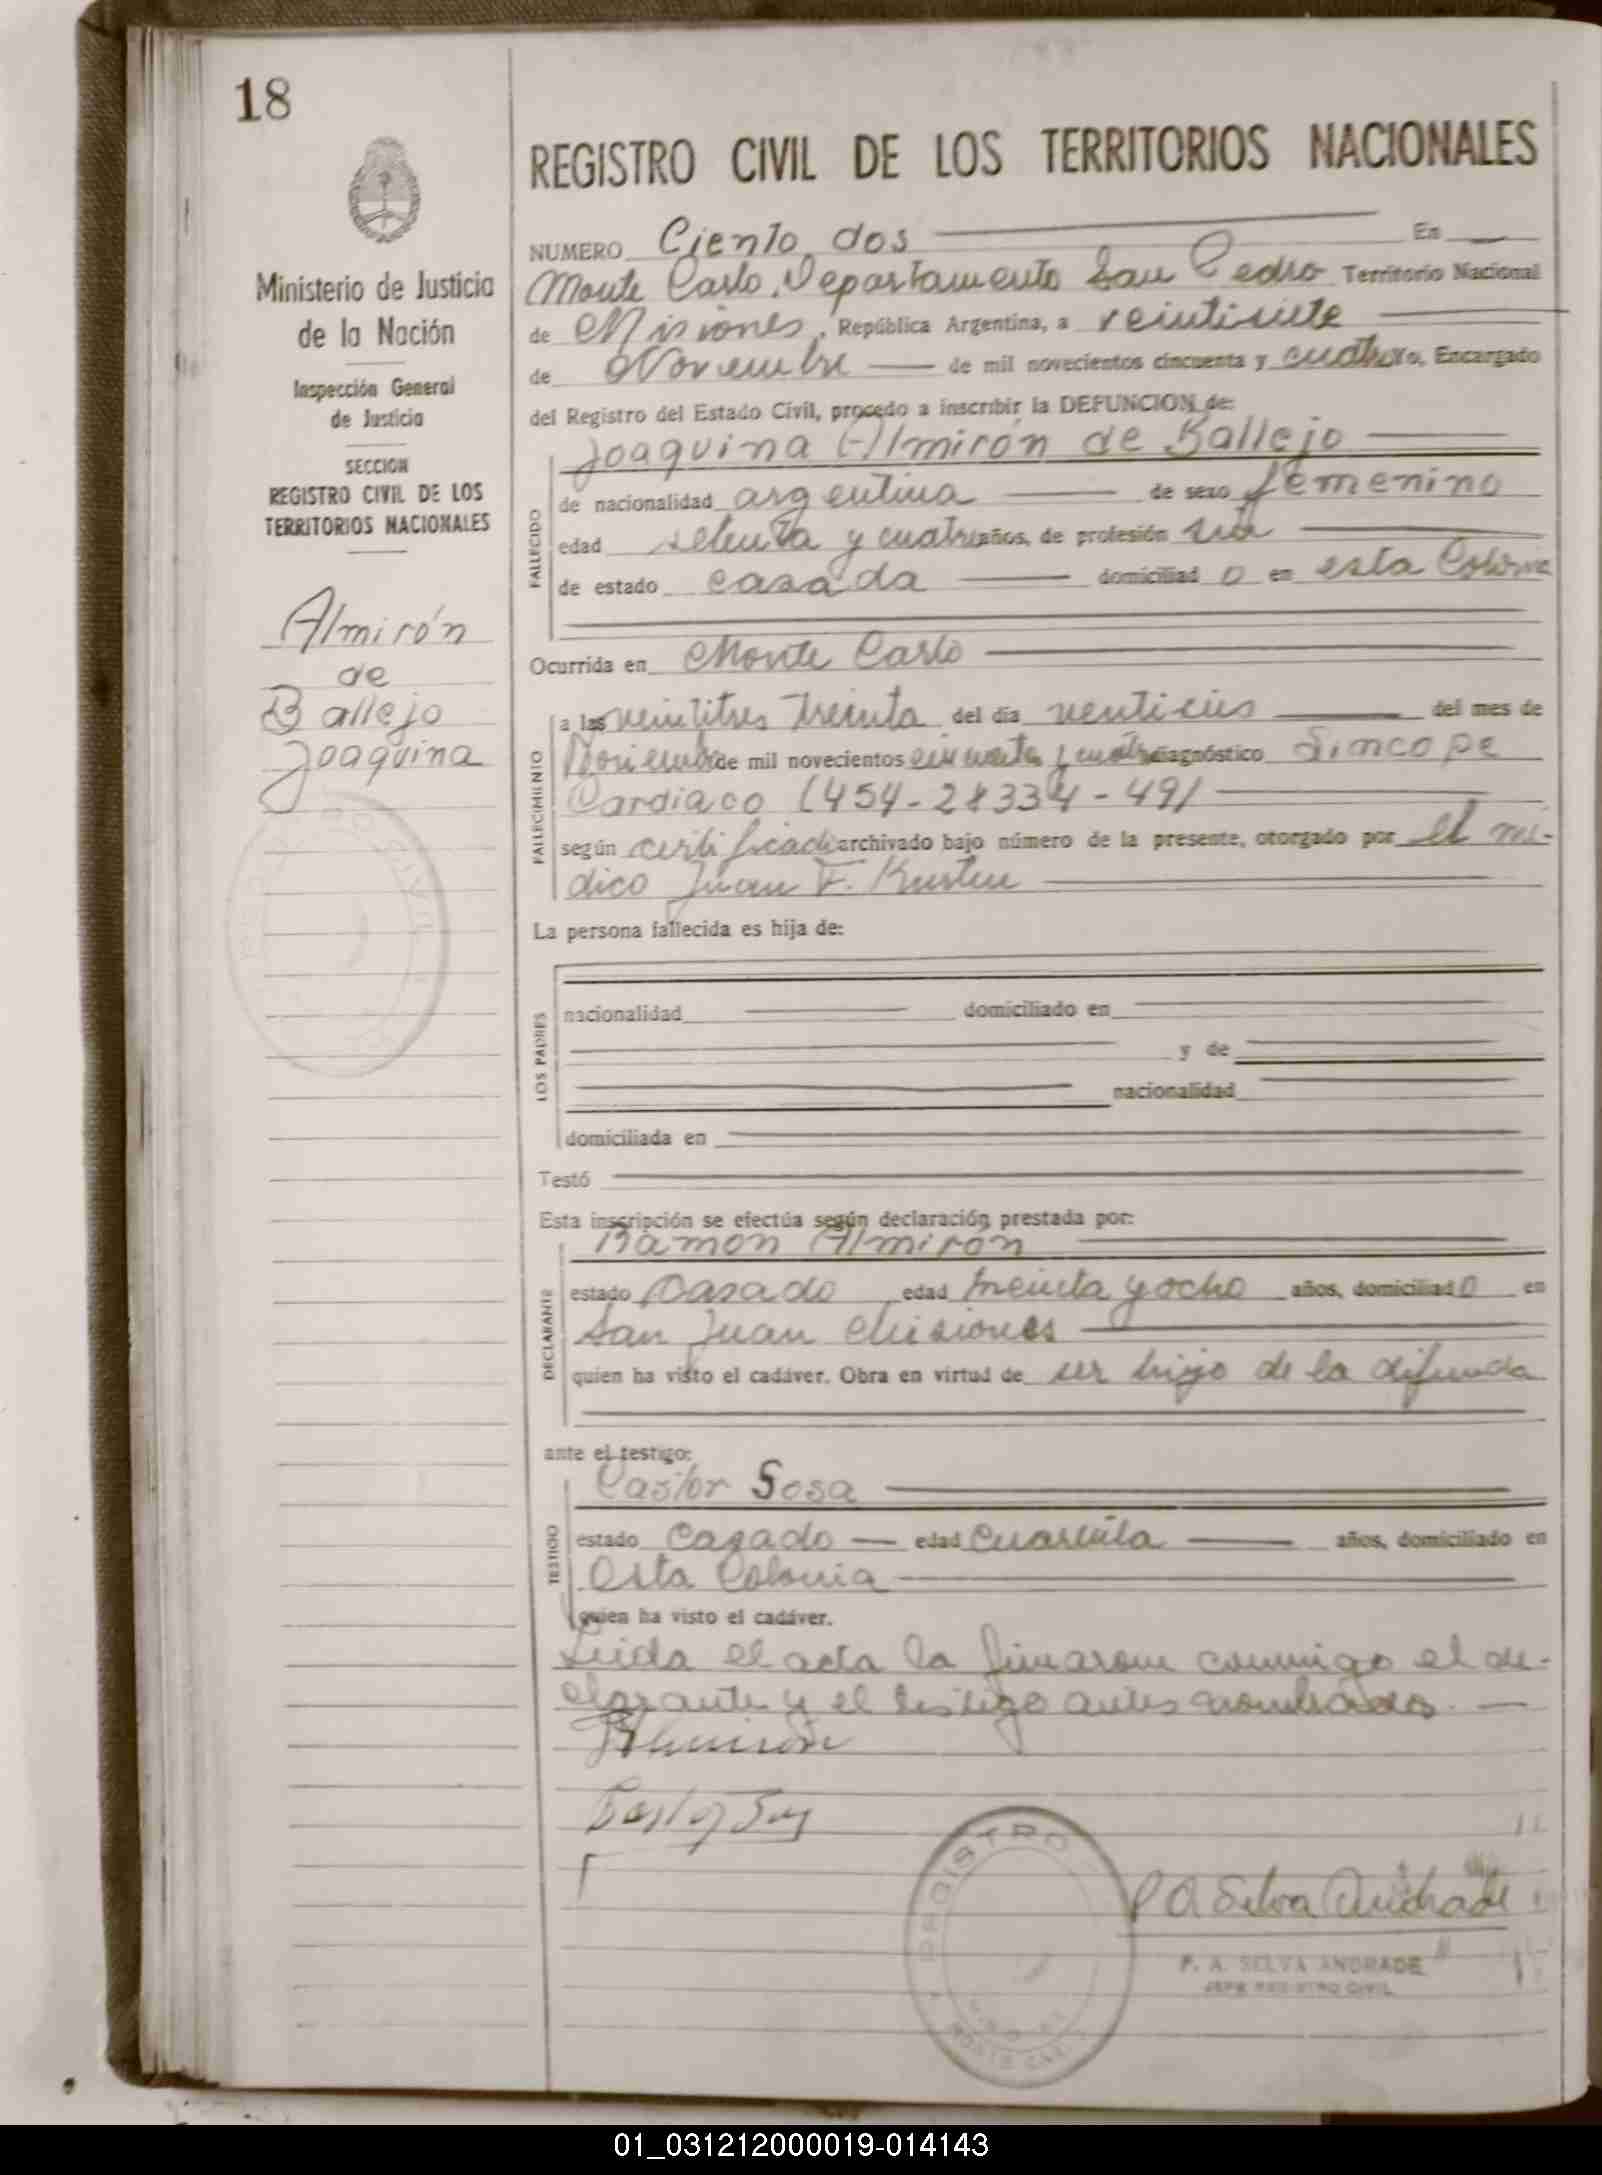 18
Ministerio de Justicia
de la Nación
Inspección General
de Justicia
SECCION
REGISTRO CIVIL DE LOS
TERRITORIOS NACIONALES
Almirón
de
Ballejo
Joaquina
REGISTRO CIVIL DE LOS TERRITORIOS NACIONALES
NUMERO Ciento dos En
Monte Carlo, Departamento San Pedro Territorio Nacional
de Misiones, República Argentina, a veintisiete
de Noviembre de mil novecientos cincuenta y cuatro yo, Encargado
del Registro del Estado Civil, procedo a inscribir la DEFUNCION de:
Joaquina Almirón de Ballejo
FALLECIDO
de nacionalidad argentina de sexo femenino
edad setenta y cuatro años, de profesión sin
de estado casada domiciliad o en esta Colonia
Ocurrida en Monte Carlo
FALLECIMIENTO
a las veintitres treinta del día del mes de
Noviembre de mil novecientos cincuenta y cuatro diagnóstico Sincope
Cardiaco (454-28334-49)
según certificado archivado bajo número de la presente, otorgado por el mé-
dico Juan F.
La persona fallecida es hija de:
LOS PADRES
nacionalidad domiciliado en
y de
nacionalidad
domiciliada en
Testó
Esta inscripción se efectúa según declaración prestada por:
Ramon Almirón
DECLARANTE
estado Casado edad treinta y ocho años, domiciliad o en
San Juan Misiones
quien ha visto el cadáver. Obra en virtud de ser hijo de la difunda
ante el testigo:
Castor Sosa
TESTIGO
estado Casado edad Cuarenta años, domiciliado en
esta Colonia
quien ha visto el cadáver.
Leida el acta la firmarom conmigo el de-
clarante y el testigo antes nombrados.
RAlmirón
Castor Sosa
REGISTRO
P A Selva Andrade
P. A. SELVA ANDRADE
JEFE REGISTRO CIVIL
01_031212000019-014143